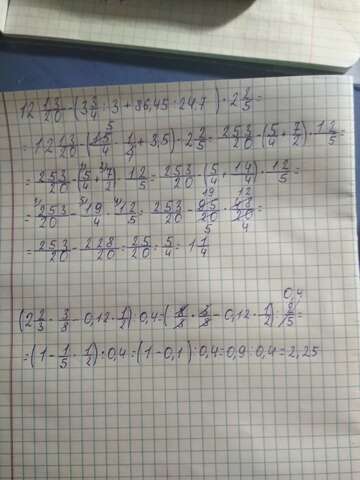 12 13/20 - (3 3/4 : 3 + 86,45 : 24,7) · 2 2/5 =
= (12 13/20 - (15/4 · 1/3 + 3,5) · 2 2/5 = 253/20 - (5/4 + 7/2) · 12/5 =
= 253/20 - (5/4 + 7/2) · 12/5 = 253/20 - (5/4 + 14/4) · 12/5 =
= 253/20 - 19/4 · 12/5 = 253/20 - 95/20 · 48/20 =
= 253/20 - 228/20 = 25/20 = 5/4 = 1 1/4
(2 2/3 · 3/8 - 0,12 · 1/2) : 0,4 = (8/3 · 3/8 - 0,12 · 1/2) : 2/5 =
= (1 - 1/5 · 1/2) : 0,4 = (1 - 0,1) : 0,4 = 0,9 : 0,4 = 2,25